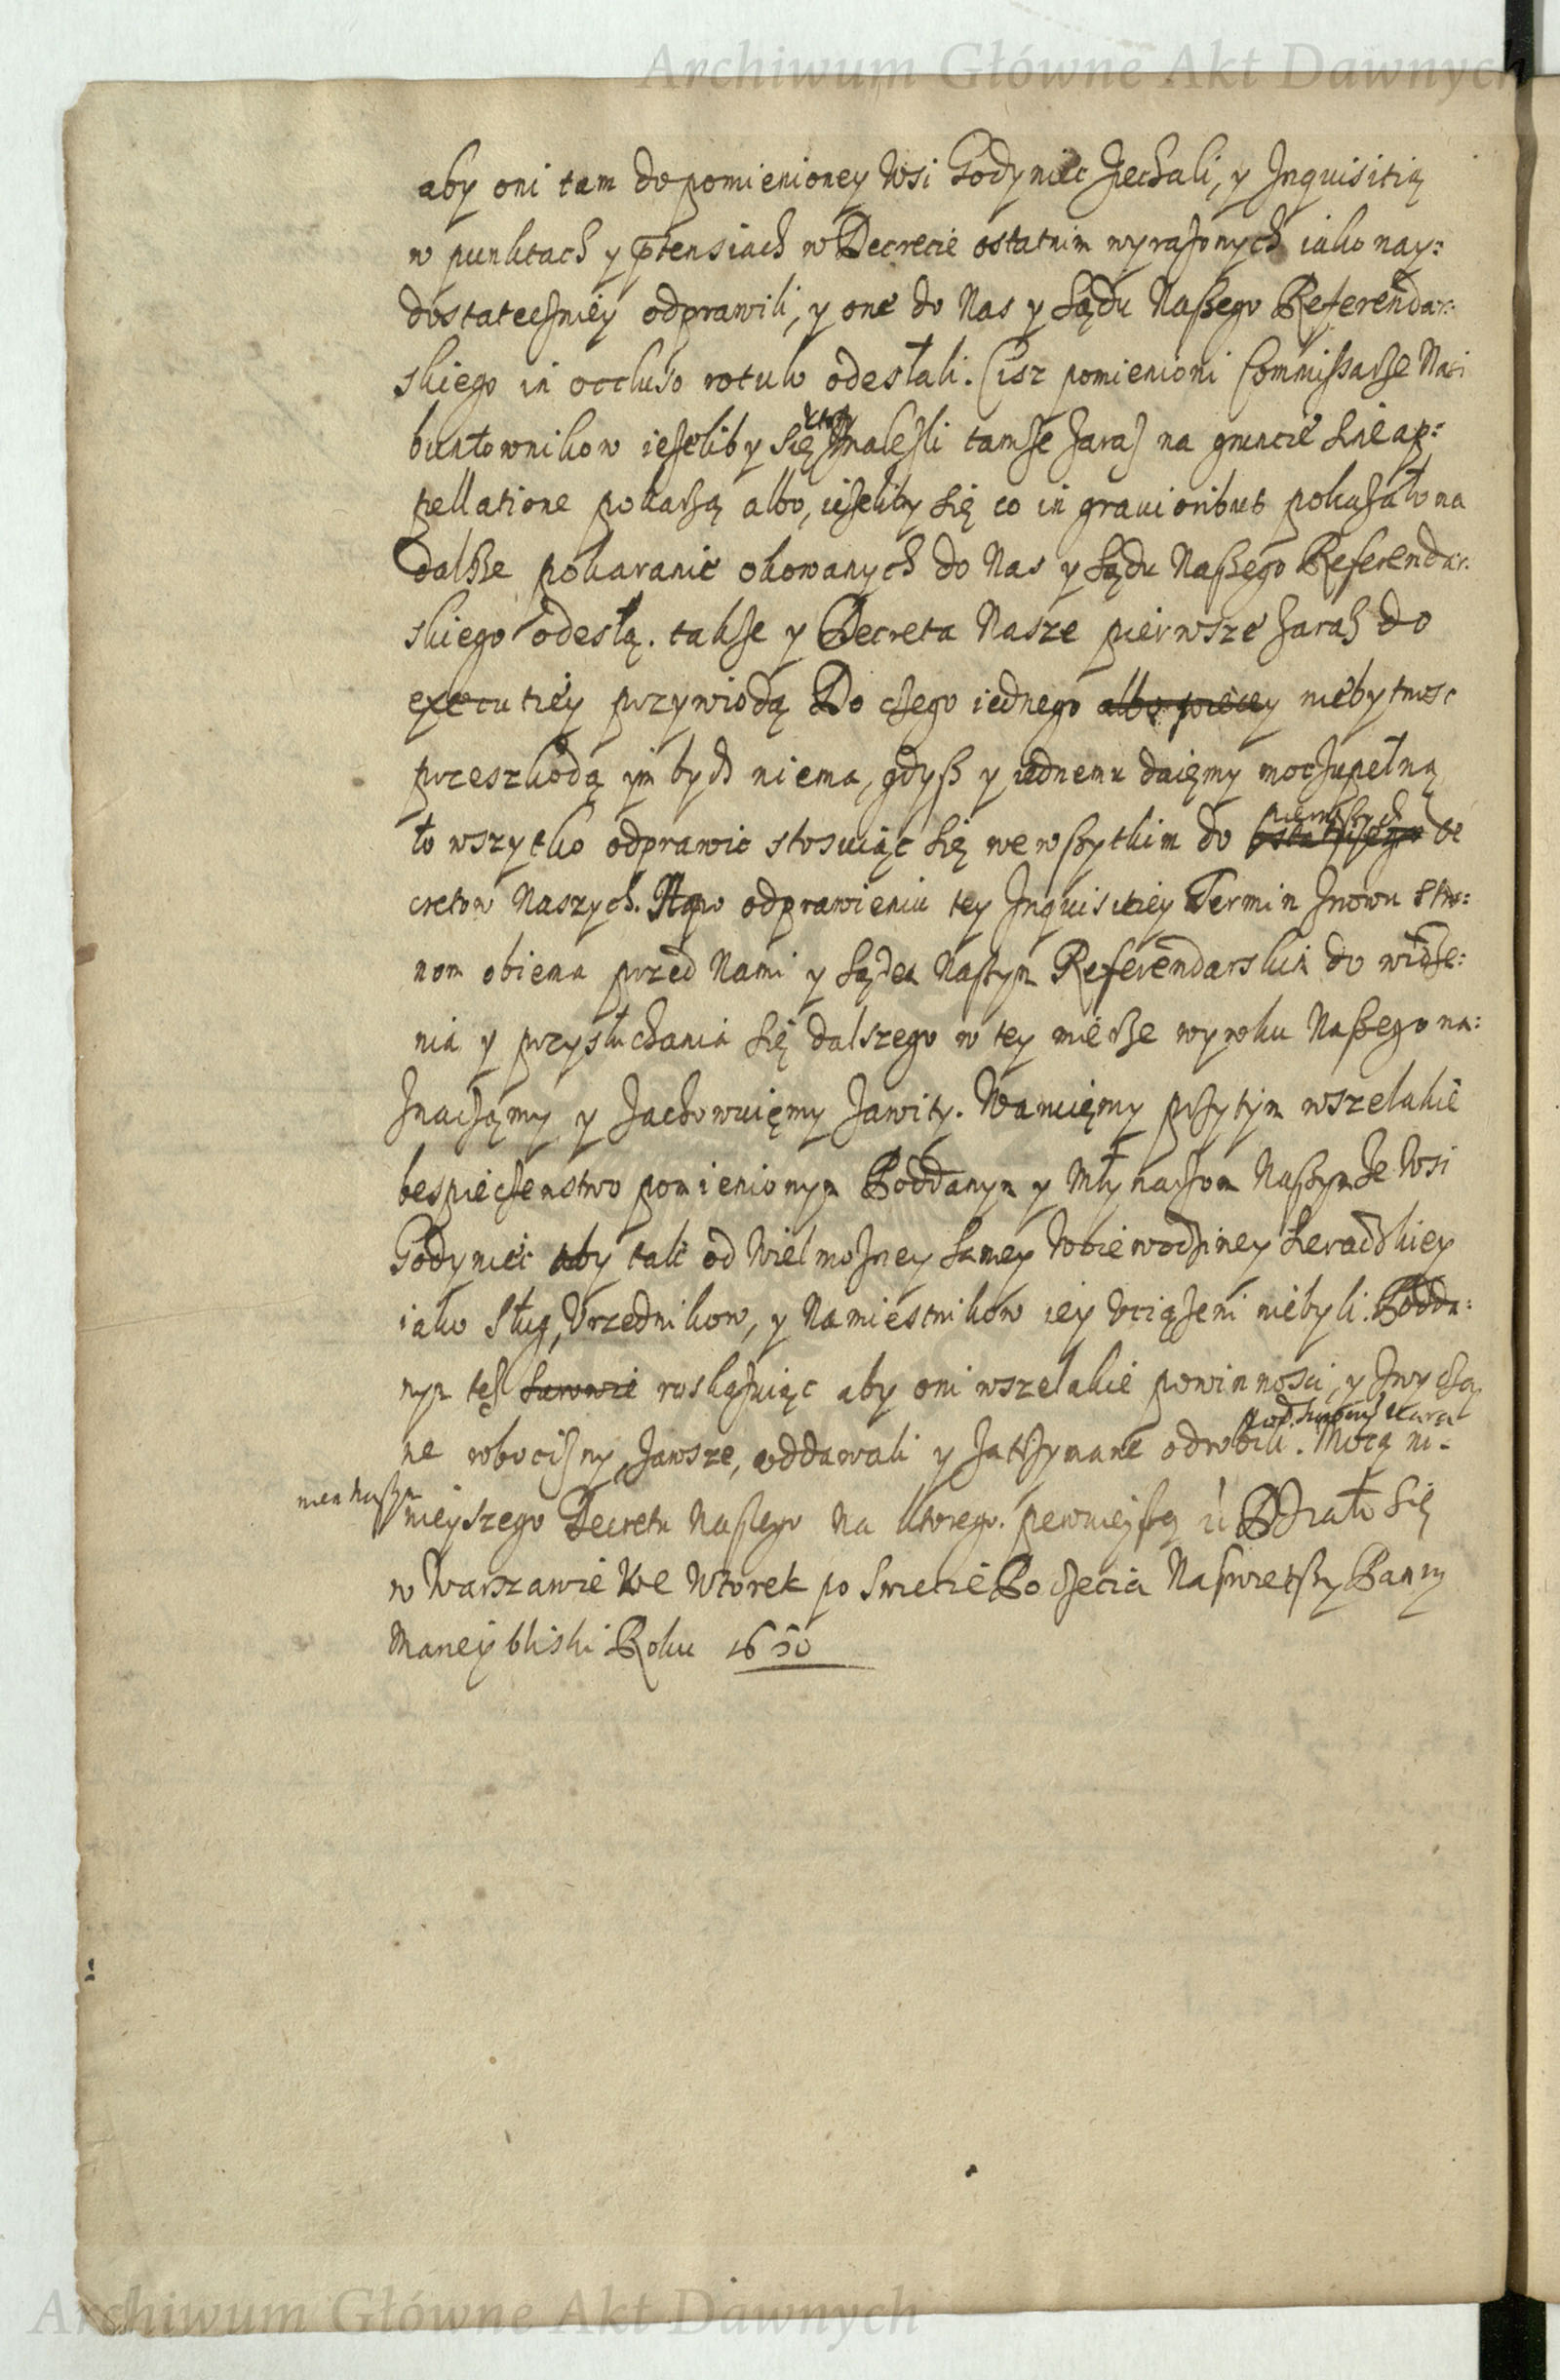 Archiwum Główne Akt Dawnych
aby oni tam do pomienioney Wsi Godyniec zechali, y Inquisitią
w punktach y ptensiach w Decrecie ostatnim wyrażonych iako nay:
dostateczniey odprawili, y one do Nas y Sądu Naszego Referendar:
skiego in occluso rotulo odesłali. Cisz pomienioni Commissarze Nasi
buntownikow ieżeliby się ktorzy znalezli tamże zaraz na gruncie sine ap:
pellatione pokarzą albo, ieżeliby się co in grauioribus pokazało na
dalsze pokaranie okowanych do Nas y Sądu Naszego Referendar:
skiego odeslą. takze y Decreta Nasze pierwsze zaraz do
executiey przywiodą Do czego iednego albo wiecey niebytnosc
przeszkodą im bydz niema, gdysz y iednemu daięmy moc zupełną
to wszytko odprawic stosuiąc się we wszytkim do ostatniego pierwszych de
cretow Naszych. A po odprawieniu tey Inquisitiey Termin znowu stro:
nom obiema przed Nami y Sądem Naszym Referendarskim do widze:
nia y przysłuchania się dalszego w tey mierze wyroku Naszego na:
znaczamy y zachowuięmy zawity. Waruięmy przytym wszelakie
bespieczenstwo pomienionym Poddanym y Młynarzom Naszym ze Wsi
Godyniec aby tak od Wielmozney samey Woiewodziney Sieradzkiey
iako Sług, Vrzednikow, y Namiestnikow iey vciązeni niebyli. Podda:
nym tesz surowie roskazuiąc aby oni wszelakie powinnosci, y zwyczay
ne robocizny zawsze, oddawali y zatrzymane odrobili pod surowym kara
niem naszym. Mocą ni:
nieyszego Decretu Naszego Na ktorego. pewnieyszą etc Działo się
w Warszawie We Wtorek po Swiecie Poczecia Naswietszy Panny
Maryey bliski Roku 1650
Archiwum Główne Akt Dawnych